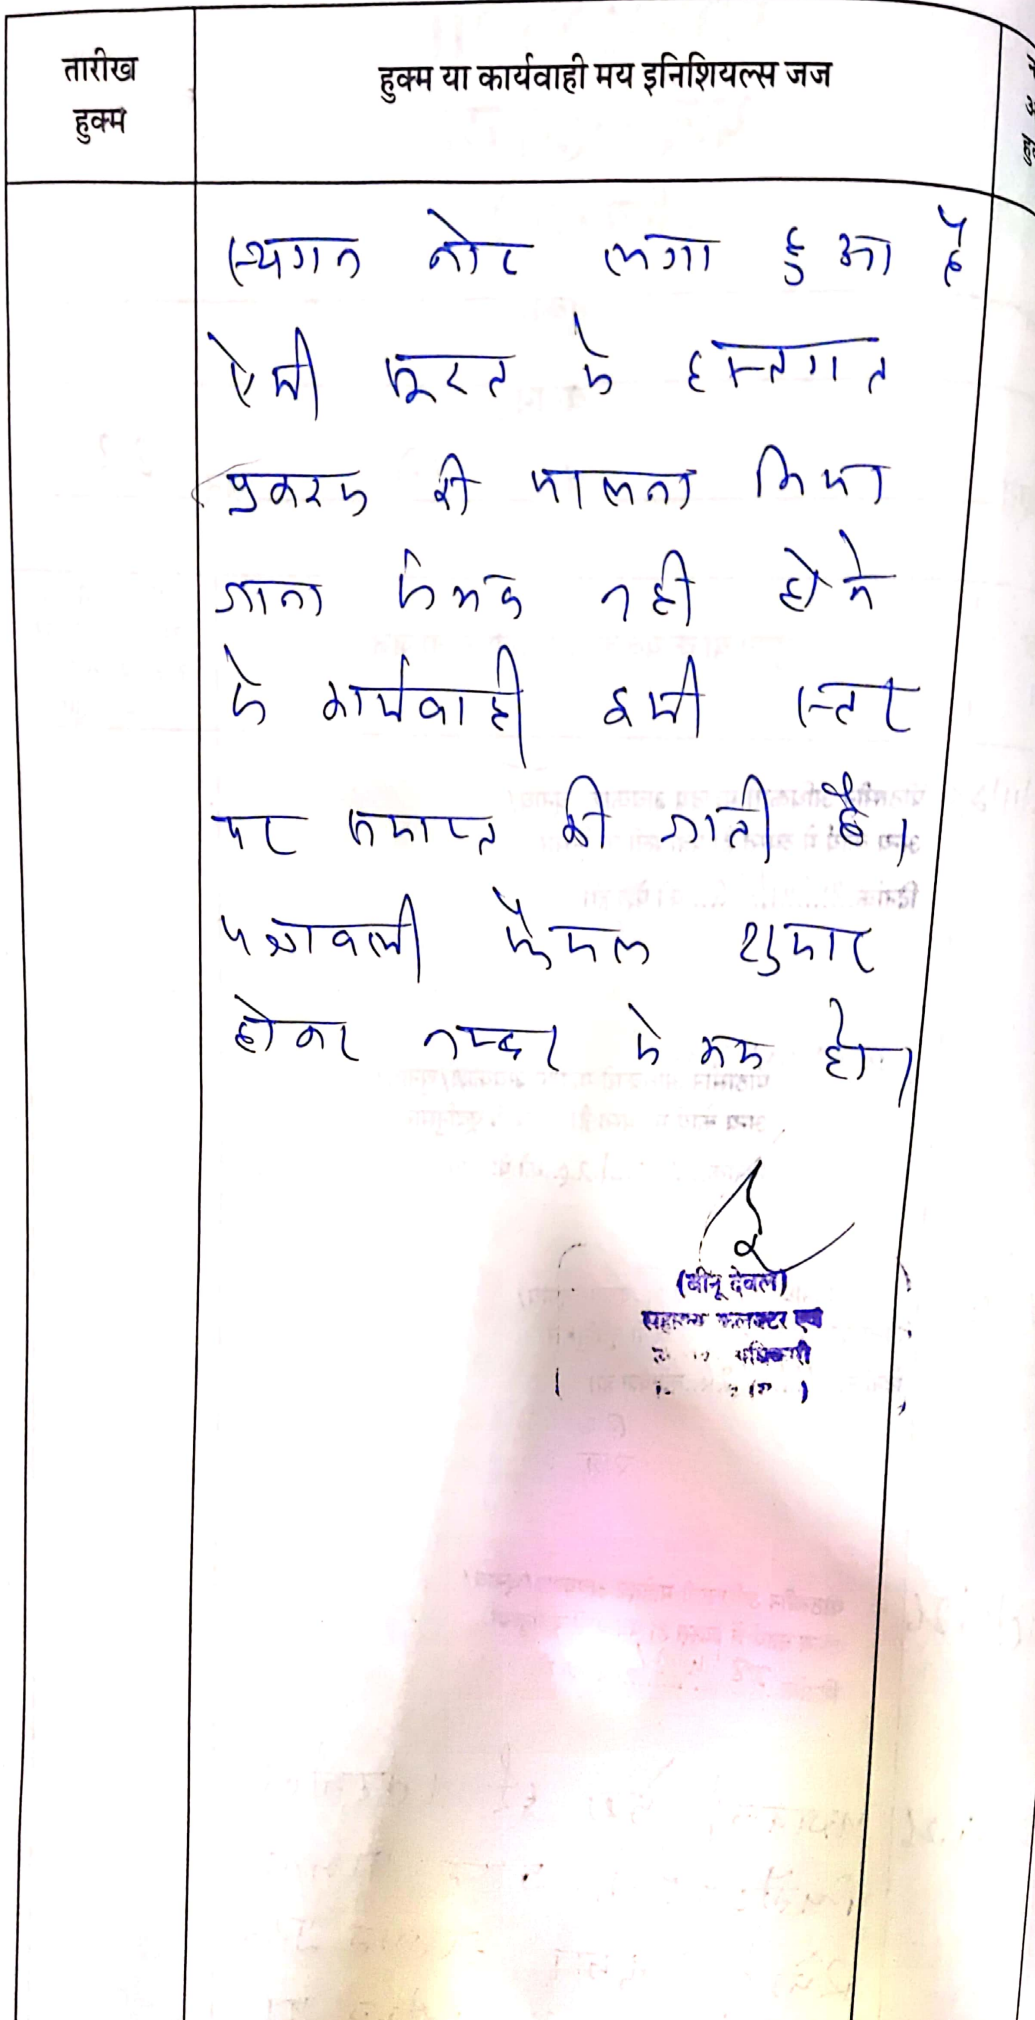 तारीख
हुक्म
हुक्म या कार्यवाही मय इनिशियल्स जज
स्थगन नोट लगा हुआ है
ऐसी सूरत में हस्तगत
प्रकरण की पालना किया
जाना संभव नही होने
से कार्यवाही इसी स्तर
पर समाप्त की जाती है।
पत्रावली फैसल शुमार
होकर नम्बर से कम हो।
(बीनू देवल)
सहायक कलक्टर एवं